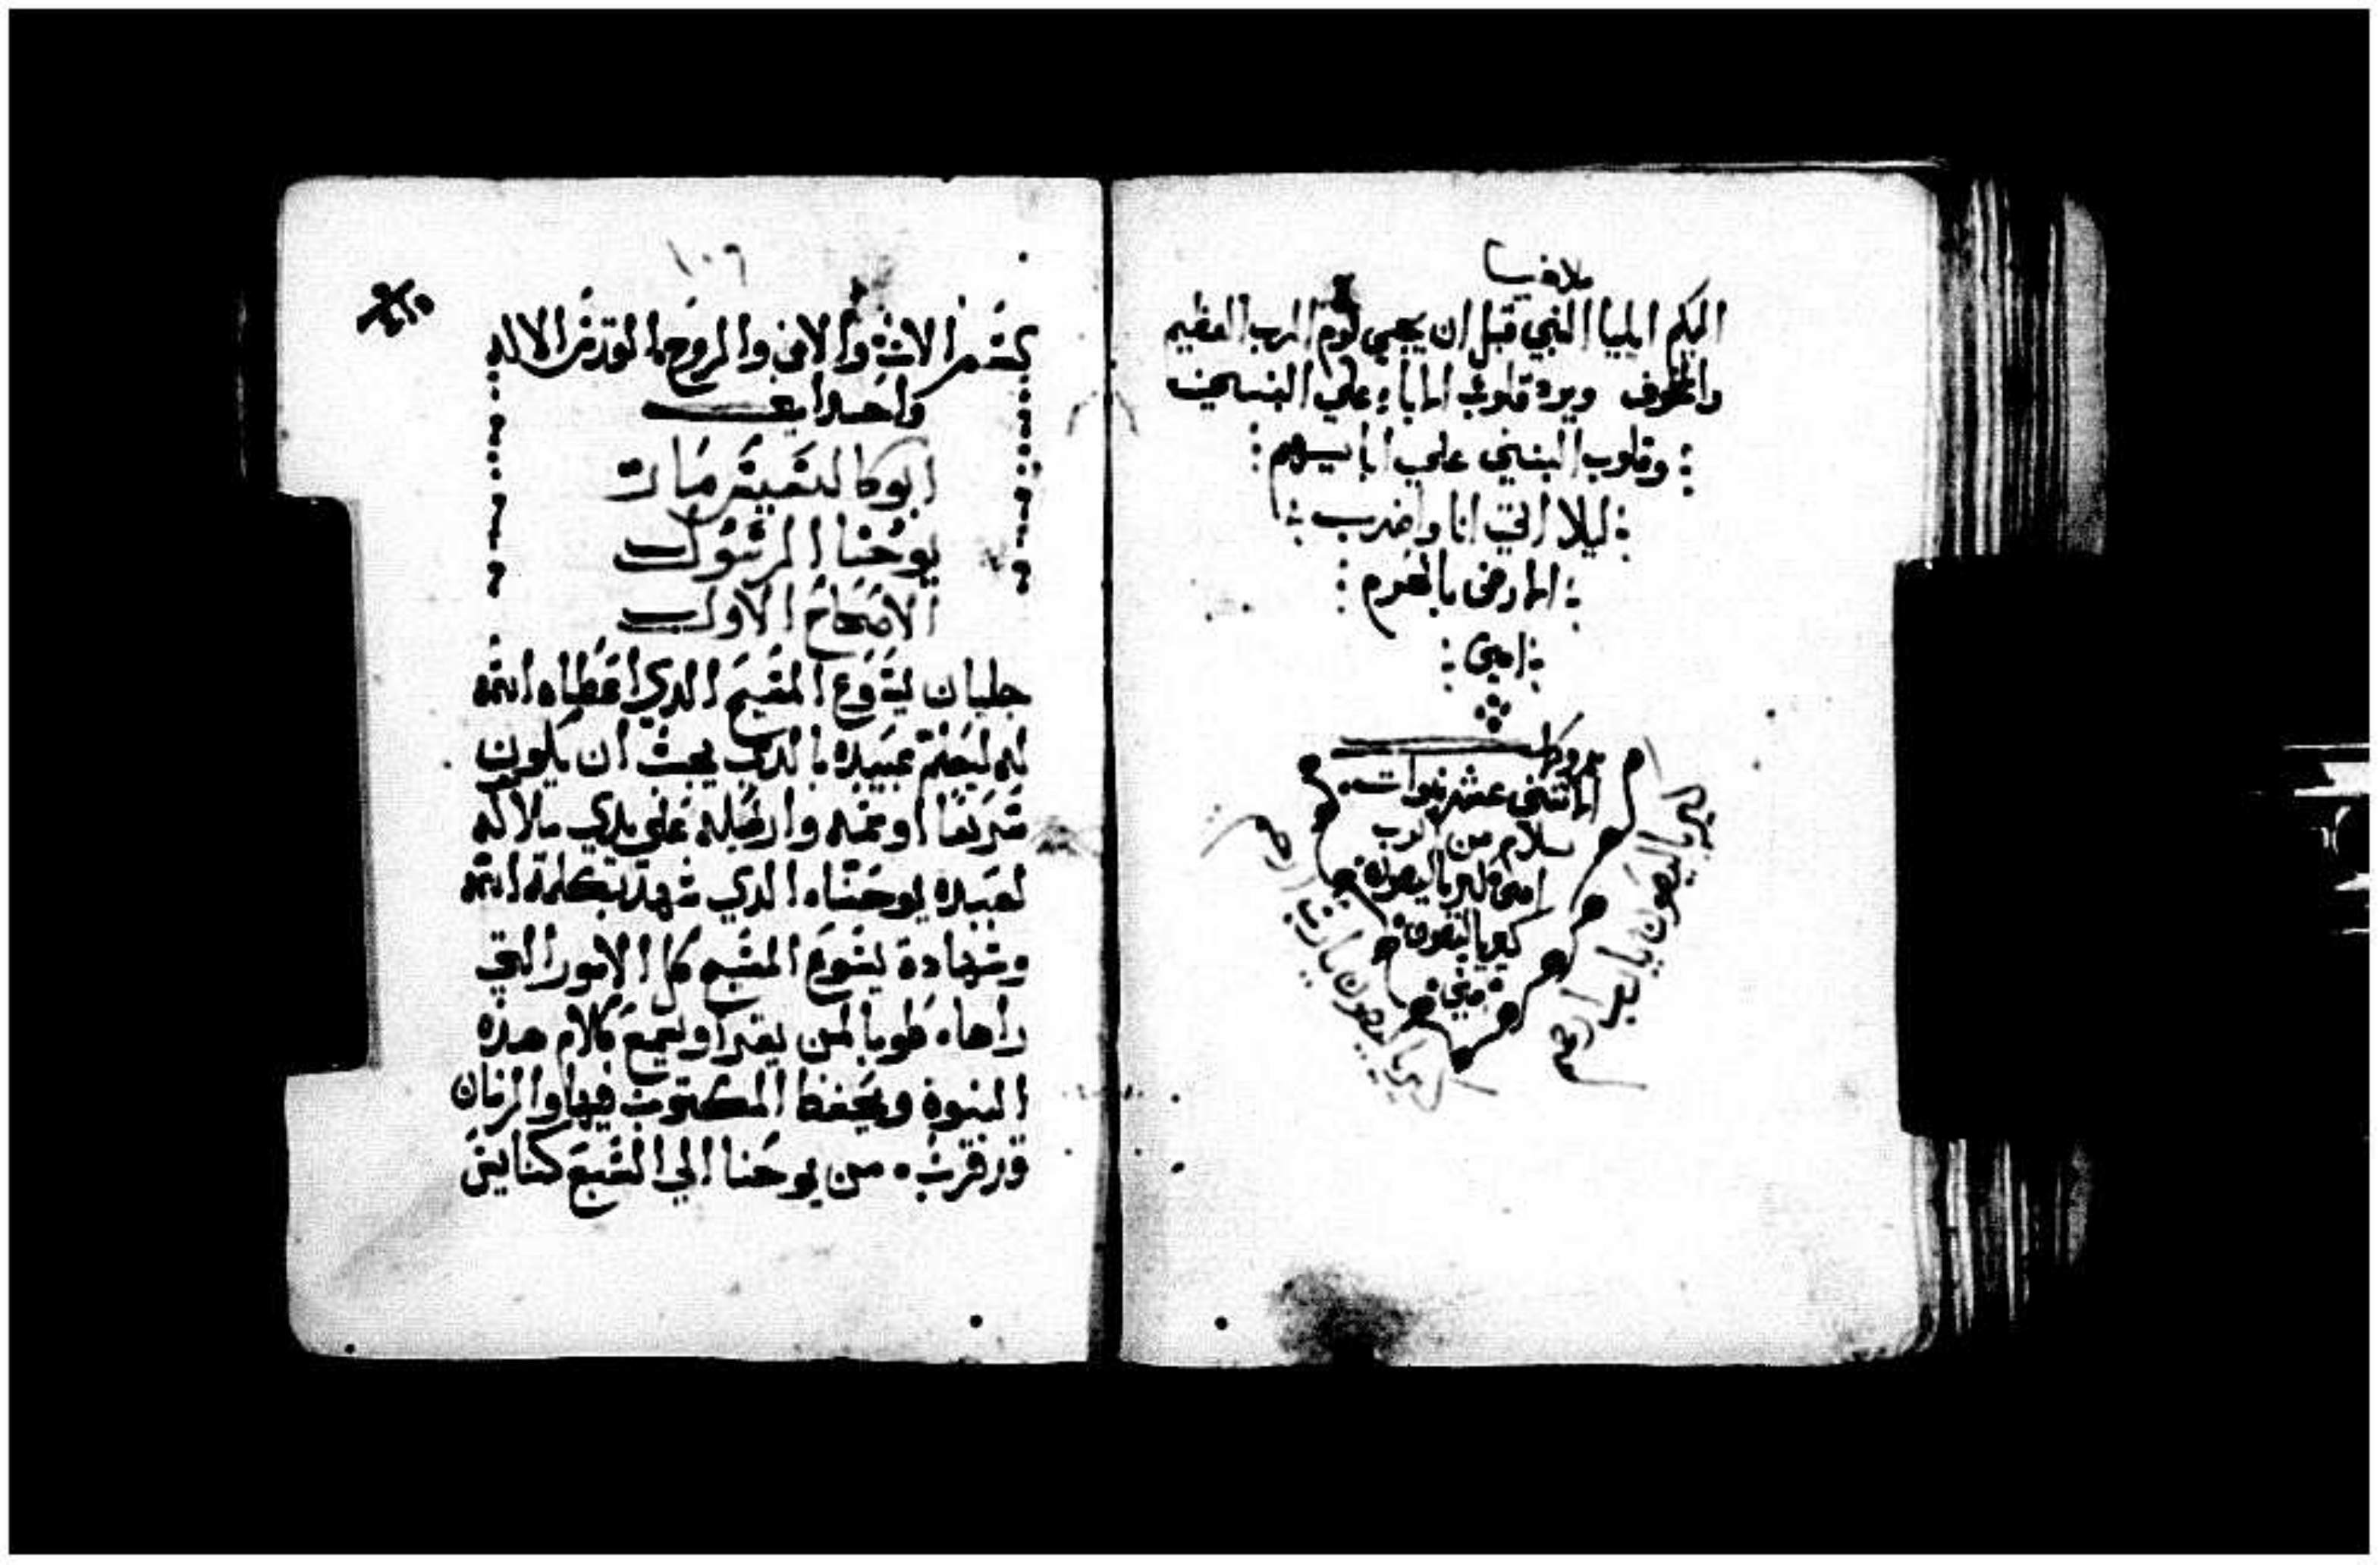 ملاخيا
اليكم ايليا النبي قبل ان يجي يوم الرب العظيم
والمخوف ويرد قلوب الاباء علي البنين
وقلوب البنين علي ابايهم
ليلا اتي انا واضرب
الارض بالحرم
امين
الاتني عشر نبوات
سلام من الرب
امين كيرياليصون
كيرياليصون
كيرياليصون يارب ارحم
كيرياليصون يارب ارحم
١٠٦
بسم الاب والابن والروح القدس الاله
واحد
ابوكالبسيس مات
يوحنا الرسول
الاصحاح الاول
جليان ليسوع المسيح الدي اعطاه الله
له ليعلم عبيده بالدي يجب ان يكون
سريعا وارسله علي يدي ملاكه
لعبده يوحنا الدي شهد بكلمة الله
وشهادة يسوع المسيح كل الامور التي
راها طوبا لمن يقرا ويسمع كلام هده
النبوة ويحفظ المكتوب فيها والزمان
قد قرب من يوحنا الي السبع كنايس